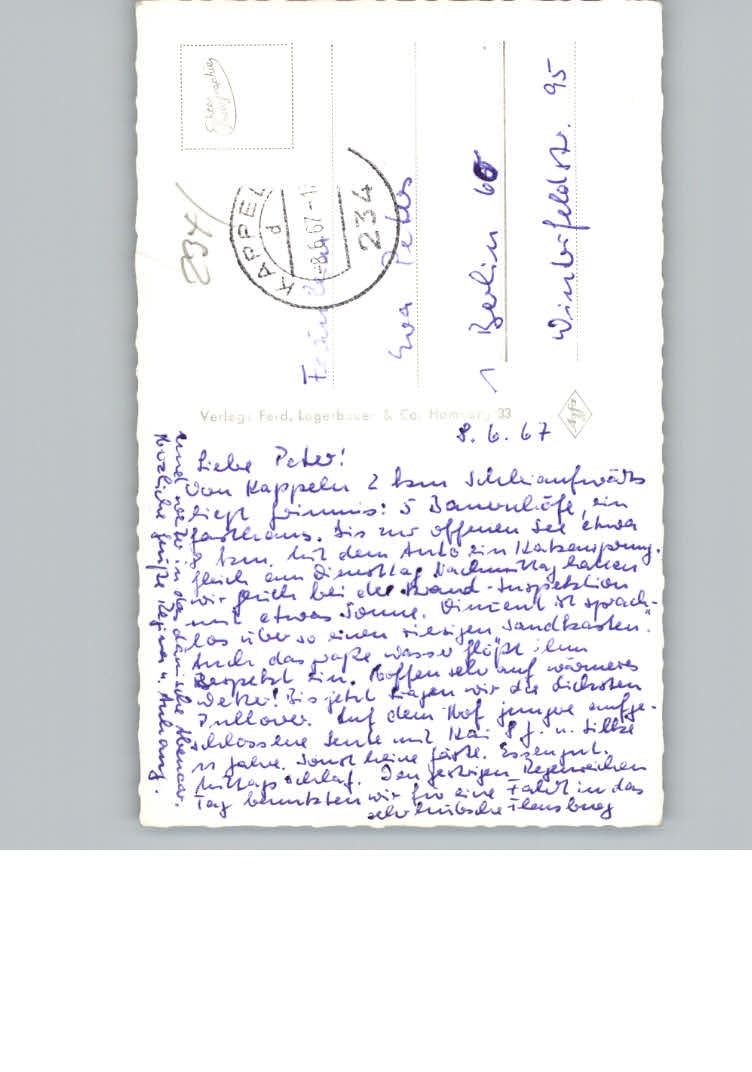 8.6.67
Liebe Peter!
Von Kappeln 2 km Schleiaufwärts
liegt Grimnis: 5 Bauernhöfe, ein
Gasthaus. Bis zur offenen See etwa
8 km. Mit dem Auto ein Katzensprung.
Gleich am Dienstag Nachmittag hatten
wir Glück bei der Strand-Inspektion
mit etwas Sonne. Vincent ist sprach-
los über so einen riesigen Sandkasten.
Auch das große Wasser flößt ihm
Respekt ein. Hoffen sehr auf wärmeres
Wetter! Bis jetzt tragen wir die dicksten
Pullover. Auf dem Hof junge aufge-
schlossene Leute mit Kai 8 J. u. Silke
11 Jahre. Sonst keine Gäste. Essen gut.
Mittagsschlaf. Den gestrigen Regenreichen
Tag benutzten wir für eine Fahrt in das
sehr hübsche Flensburg
und weiter in das dänische
Herzliche Grüße Regina u. Anhang.
Verlag: Ferd. Lagerbauer & Co. Hamburg 33
Agfa
Echte Photographie
234/
KAPPEL
d
-8.6.67-1
234
Fräulein
Eva Peters
1 Berlin 60
Winterfeldstr. 95